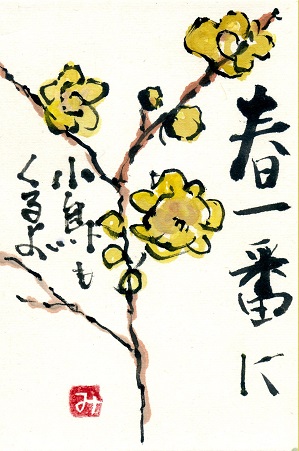 春一番に
小鳥も
くるよ
み